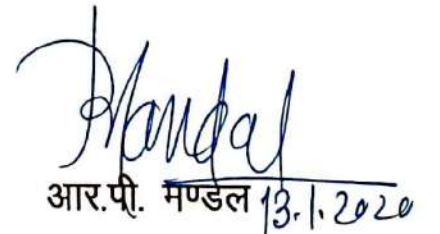 Mandal
आर.पी. मण्डल 13.1.2020